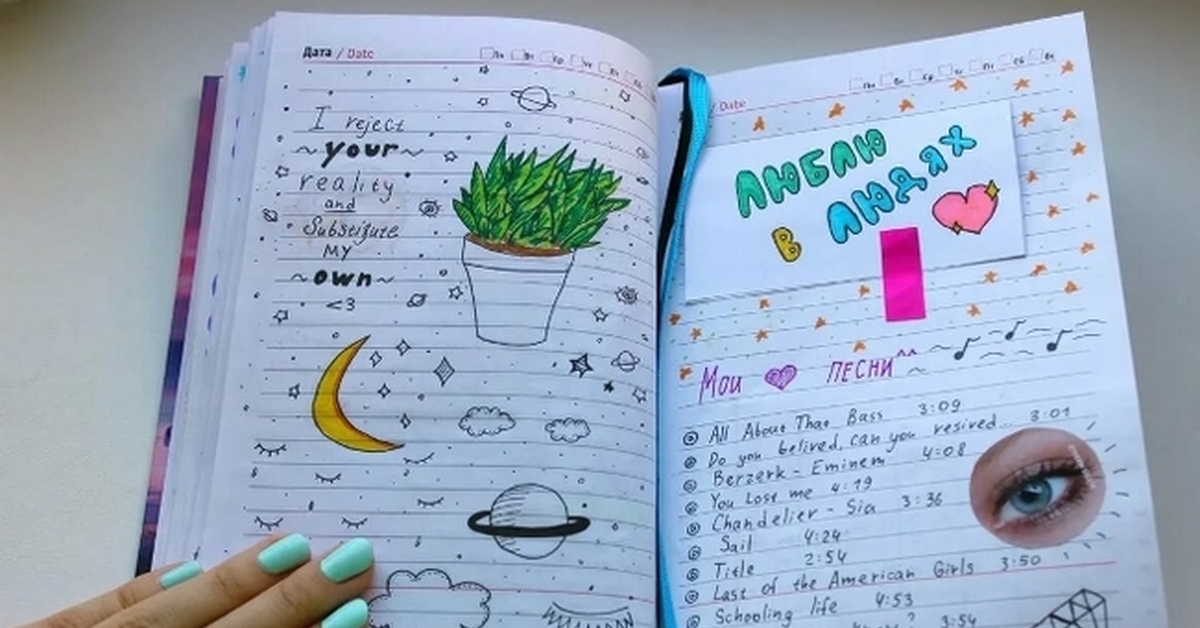 Дата / Date
Пн Вт Ср Чт Пт Сб
I reject
~your~
reality
and
Substitute
MY
~own~
<3
/ Date
Пн Вт Ср Чт Пт Сб Вс
ЛЮБЛЮ
В ЛЮДЯХ
Мои ПЕСНИ^^
All About That Bass 3:09
Do you belived, can you resived... 3:01
Berzerk - Eminem 4:08
You Lose me 4:19
Chandelier - Sia 3:36
Sail 4:24
Title 2:54
Last of the American Girls 3:50
Schooling life 4:53
3:54